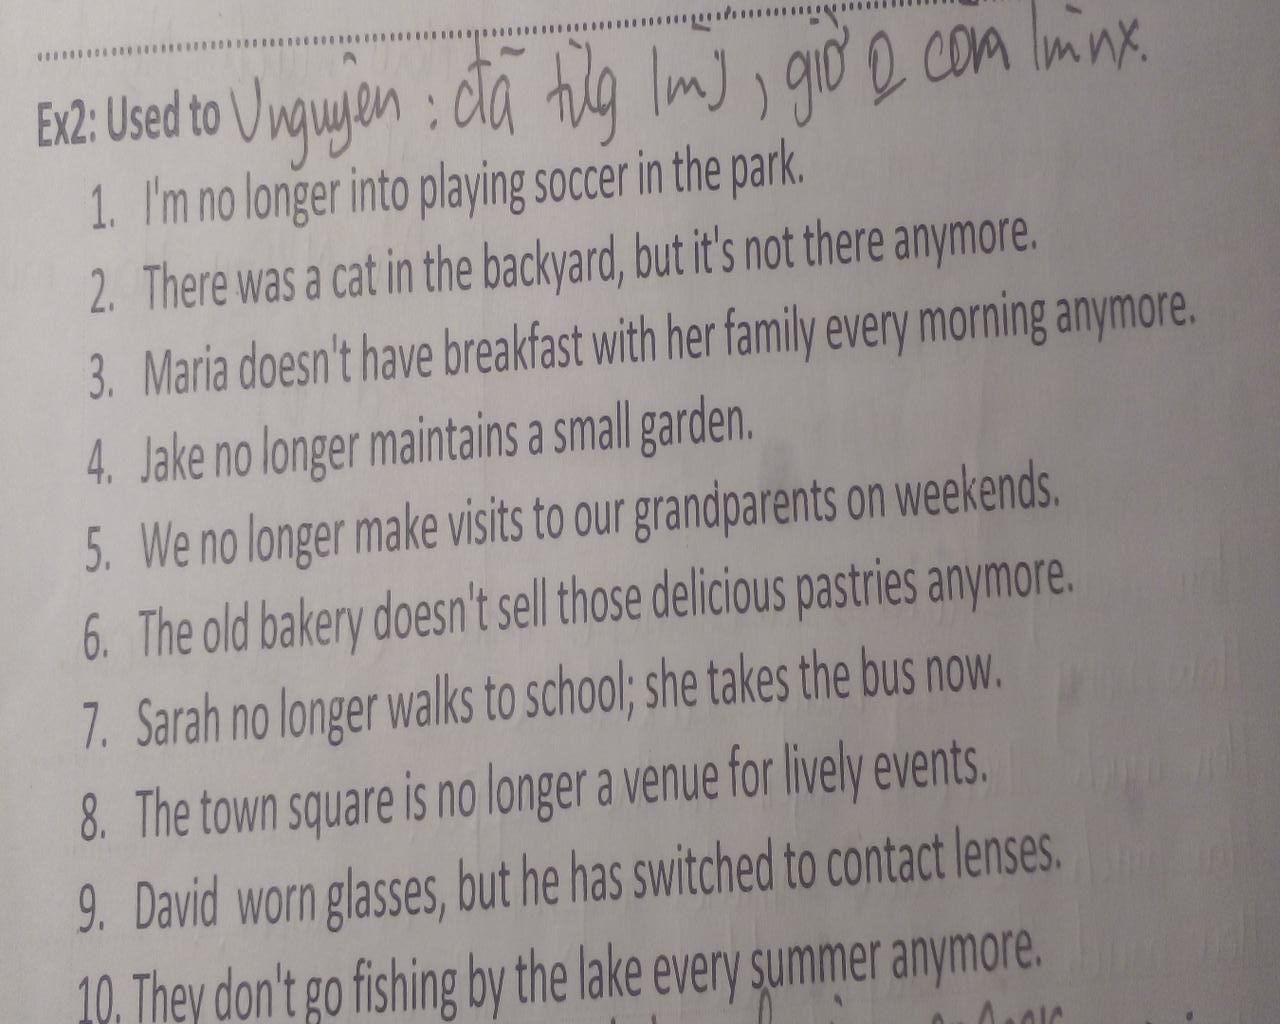 Ex2: Used to Vnguyên : đã từg lmj, giờ 0 còn lm nx.
1. I'm no longer into playing soccer in the park.
2. There was a cat in the backyard, but it's not there anymore.
3. Maria doesn't have breakfast with her family every morning anymore.
4. Jake no longer maintains a small garden.
5. We no longer make visits to our grandparents on weekends.
6. The old bakery doesn't sell those delicious pastries anymore.
7. Sarah no longer walks to school; she takes the bus now.
8. The town square is no longer a venue for lively events.
9. David worn glasses, but he has switched to contact lenses.
10. They don't go fishing by the lake every summer anymore.